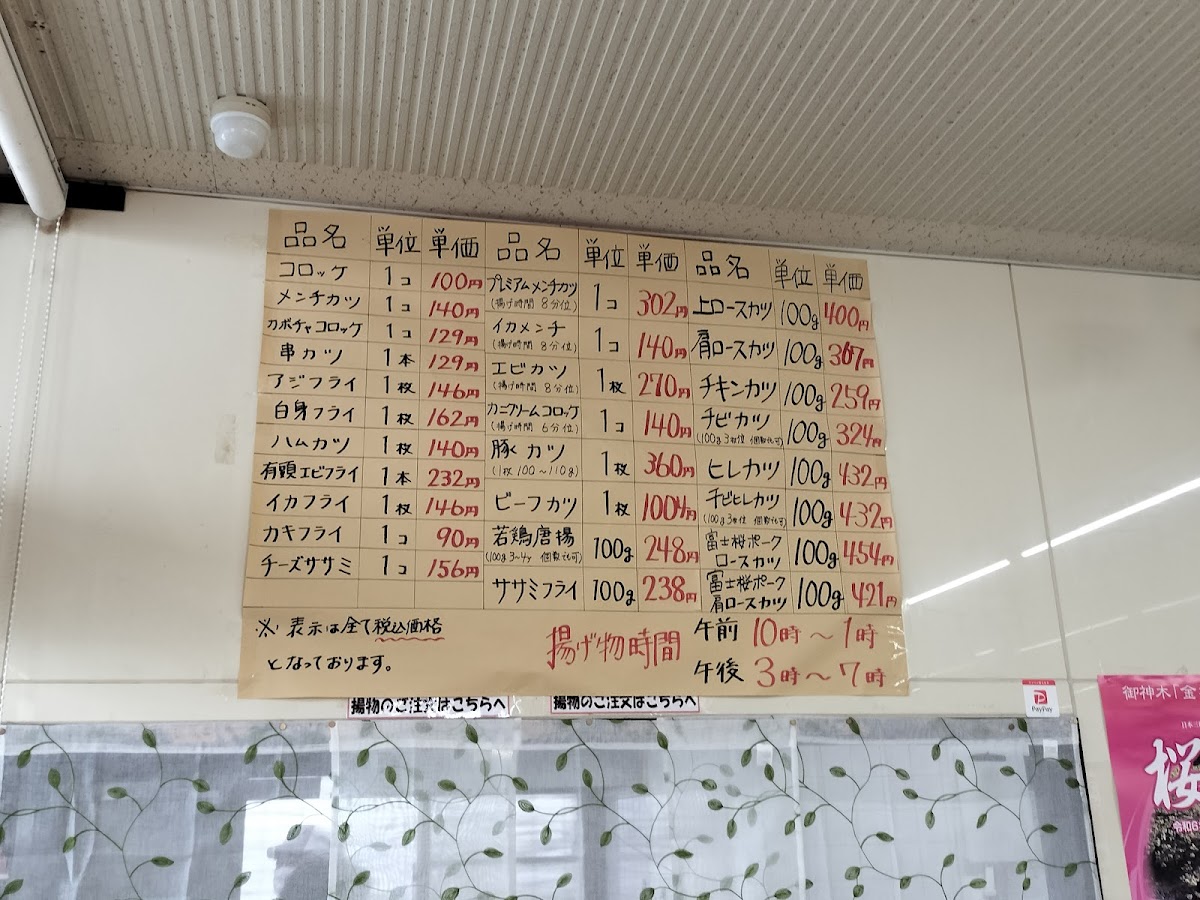 品名 単位 単価
コロッケ 1コ 100円
メンチカツ 1コ 140円
カボチャコロッケ 1コ 129円
串カツ 1本 129円
アジフライ 1枚 146円
白身フライ 1枚 162円
ハムカツ 1枚 140円
有頭エビフライ 1本 232円
イカフライ 1枚 146円
カキフライ 1コ 90円
チーズササミ 1コ 156円
品名 単位 単価
プレミアムメンチカツ 1コ 302円
(揚げ時間 8分位)
イカメンチ 1コ 140円
(揚げ時間 8分位)
エビカツ 1枚 270円
(揚げ時間 8分位)
カニクリームコロッケ 1コ 140円
(揚げ時間 6分位)
豚カツ 1枚 360円
(1枚100~110g)
ビーフカツ 1枚 1004円
若鶏唐揚 100g 248円
(100g 3~4ヶ 個数でも可)
ササミフライ 100g 238円
品名 単位 単価
上ロースカツ 100g 400円
肩ロースカツ 100g 367円
チキンカツ 100g 259円
チビカツ 100g 324円
(100g 3枚位 個数でも可)
ヒレカツ 100g 432円
チビヒレカツ 100g 432円
(100g 3枚位 個数でも可)
富士桜ポーク
ロースカツ 100g 454円
富士桜ポーク
肩ロースカツ 100g 421円
※表示は全て税込価格
となっております。
揚げ物時間
午前 10時~1時
午後 3時~7時
揚物のご注文はこちらへ
揚物のご注文はこちらへ
PayPay
御神木「金
桜
令和6